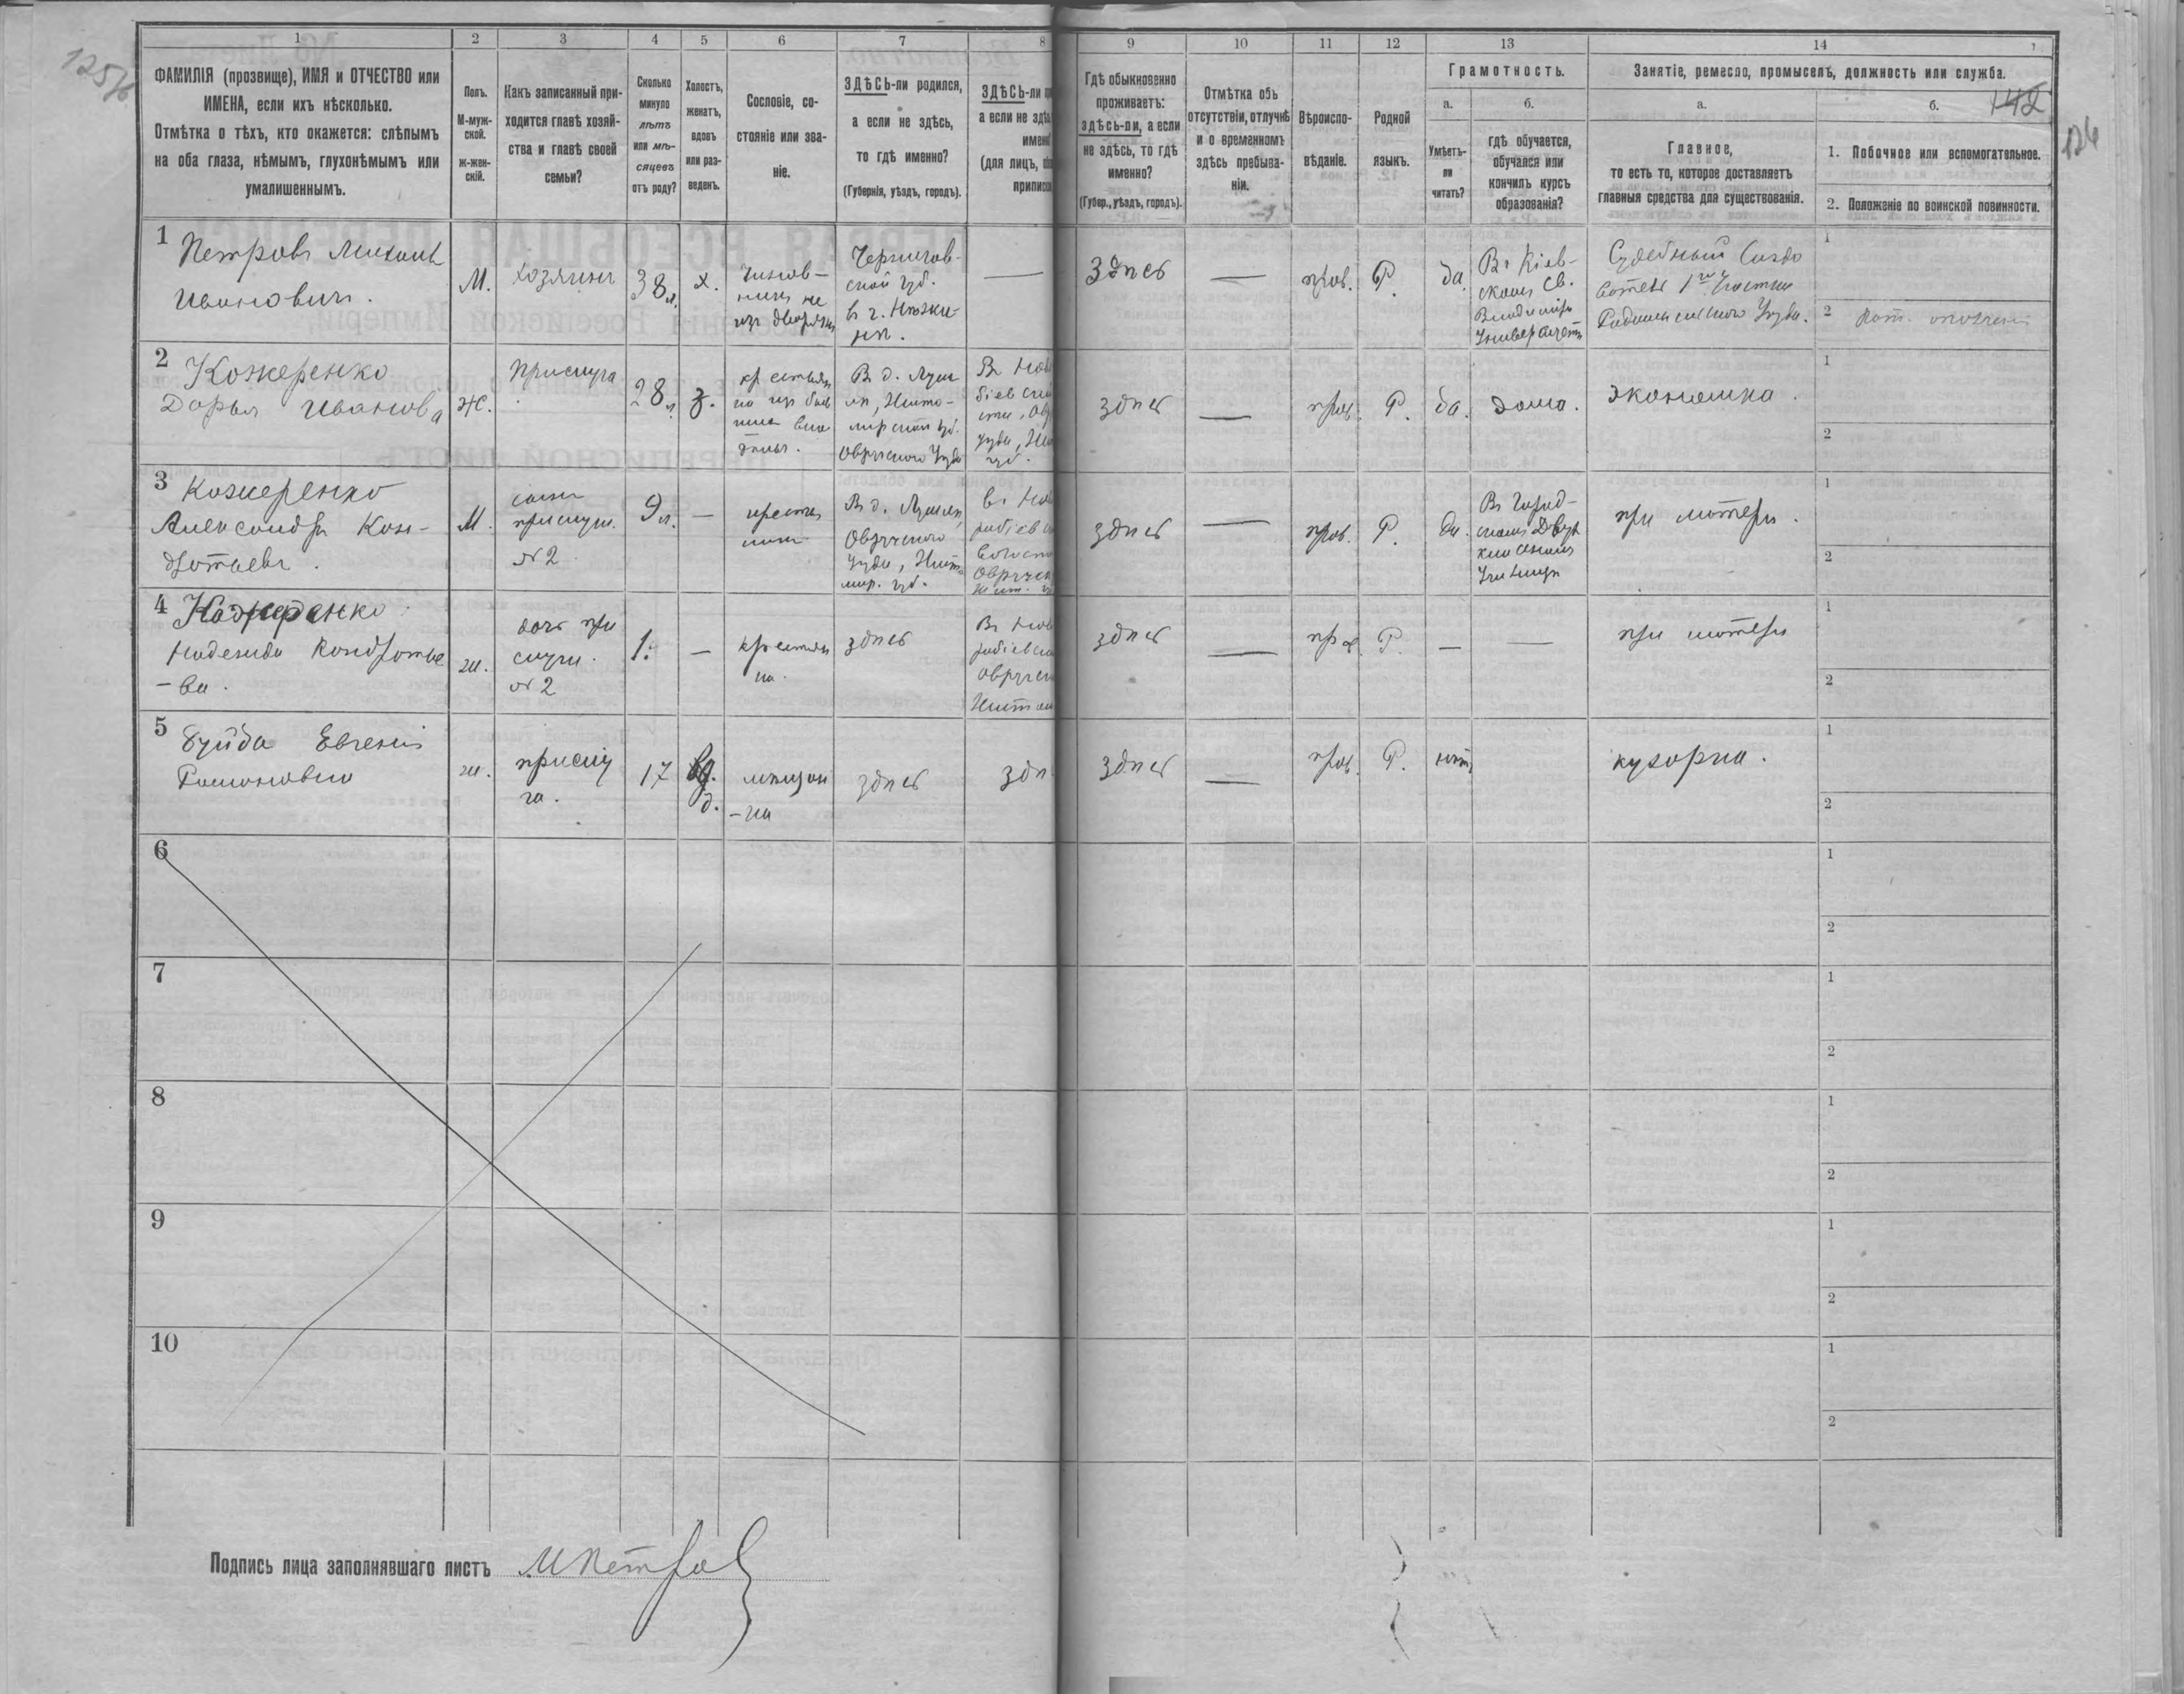 125/6
1 2 3 4 5 6 7 8 9 10 11 12 13 14
ФАМИЛІЯ (прозвище), ИМЯ и ОТЧЕСТВО или
ИМЕНА, если ихъ нѣсколько.
Отмѣтка о тѣхъ, кто окажется: слѣпымъ
на оба глаза, нѣмымъ, глухонѣмымъ или
умалишеннымъ.
Полъ.
М-муж-
ской.
ж-жен-
скій.
Какъ записанный при-
ходится главѣ хозяй-
ства и главѣ своей
семьи?
Сколько
минуло
лѣтъ
или мѣ-
сяцевъ
отъ роду?
Холостъ,
женатъ,
вдовъ
или раз-
веденъ.
Сословіе, со-
стояніе или зва-
ніе.
ЗДѢСЬ-ли родился,
а если не здѣсь,
то гдѣ именно?
(Губернія, уѣздъ, городъ).
ЗДѢСЬ-ли
а если не здѣ
имен
(для лицъ,
приписк
Гдѣ обыкновенно
проживаетъ:
здѣсь-ли, а если
не здѣсь, то гдѣ
именно?
(Губер., уѣздъ, городъ).
Отмѣтка объ
отсутствіи, отлучкѣ
и о временномъ
здѣсь пребыва-
ніи.
Вѣроиспо-
вѣданіе.
Родной
языкъ.
Грамотность.
а.
Умѣетъ-
ли
читать?
б.
гдѣ обучается,
обучался или
кончилъ курсъ
образованія?
Занятіе, ремесло, промыселъ, должность или служба.
а.
Главное,
то есть то, которое доставляетъ
главныя средства для существованія.
б.
142
126
1. Побочное или вспомогательное.
2. Положеніе по воинской повинности.
1
Петровъ Михаилъ
Ивановичъ.
М.
хозяинъ
38 л.
х.
чинов-
никъ не
изъ дворянъ
Чернигов-
ской губ.
в г. Нѣжи-
нѣ.
—
Здѣсь
—
прав.
Р.
да
Въ Кіев-
скомъ Св.
Владимира
Университетѣ
Судебный Слѣдо
ватель 1го участка
Радомысльскаго Уѣзда.
1
2
2
Кожеренко
Дарья Иванова
Ж.
прислуга
28 л.
з.
крестьян
ка изъ быв
Въ д.
Овручскаго Уѣзда
здѣсь
—
прав.
Р.
да.
дома.
экономка.
1
2
3
Кожеренко
Александръ Кон-
дратьевъ.
М.
сынъ
прислуги.
№ 2
9 л.
—
Въ д.
Овручскаго
уѣзда, Жито
мир. губ.
здѣсь
—
прав.
Р.
да.
Въ Город-
скомъ Двух
классномъ
Училищѣ
при матери.
1
2
4
Кожеренко
Надежда Кондратье
-ва.
ж.
дочь при
слуги.
№ 2
1.
—
крестьян
ка.
здѣсь
здѣсь
—
прав.
Р.
—
—
при матери
1
2
5
Буйда Евгенія
Романовна
ж.
прислу
га.
17
д.
мѣщан
-ка
здѣсь
здѣ
здѣсь
—
прав.
Р.
нѣтъ
кухарка.
1
2
6
1
2
7
1
2
8
1
2
9
1
2
10
1
2
Подпись лица заполнявшаго листъ МПетровъ